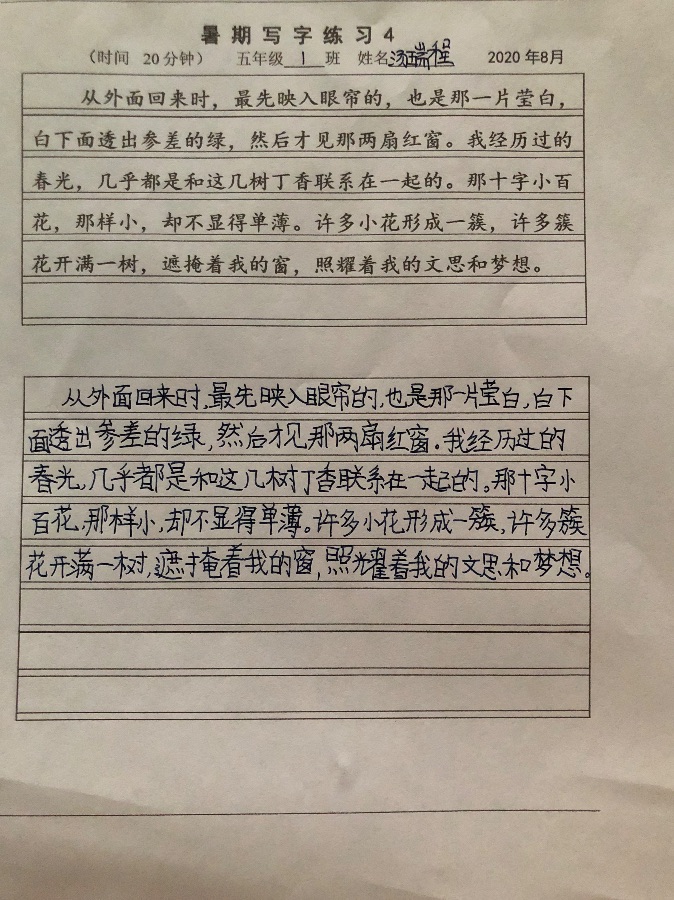 暑期写字练习4
（时间 20分钟） 五年级1班 姓名汤瑞程 2020年8月
从外面回来时，最先映入眼帘的，也是那一片莹白，
白下面透出参差的绿，然后才见那两扇红窗。我经历过的
春光，几乎都是和这几树丁香联系在一起的。那十字小百
花，那样小，却不显得单薄。许多小花形成一簇，许多簇
花开满一树，遮掩着我的窗，照耀着我的文思和梦想。
从外面回来时,最先映入眼帘的,也是那一片莹白,白下
面透出参差的绿,然后才见那两扇红窗.我经历过的
春光,几乎都是和这几树丁香联系在一起的.那十字小
百花,那样小,却不显得单薄.许多小花形成一簇,许多簇
花开满一树,遮掩着我的窗,照耀着我的文思和梦想.